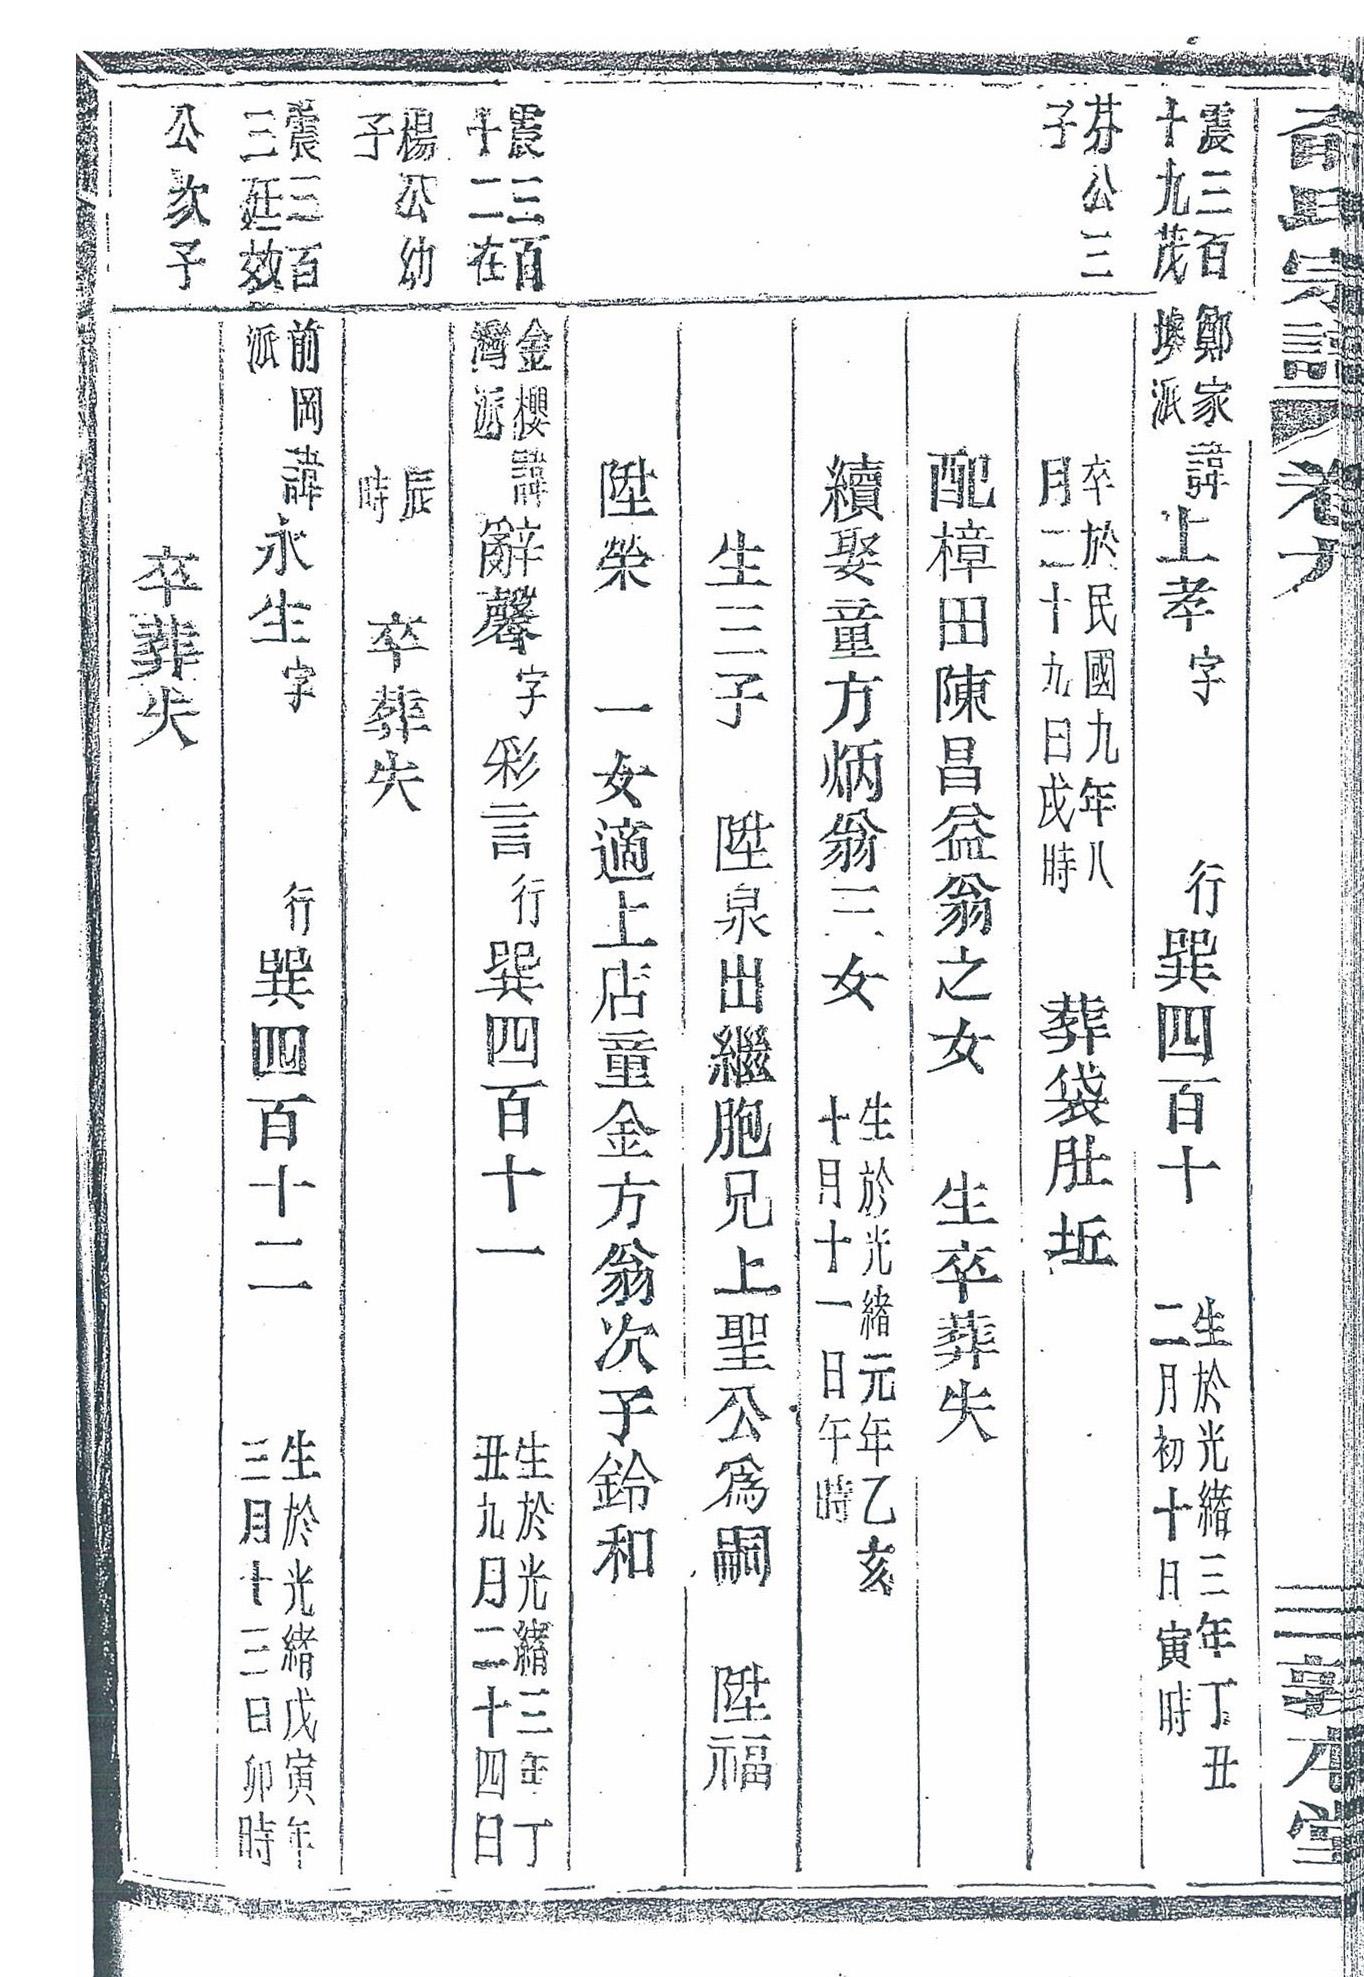 氏宗譜 卷六 三 敦本堂
震三百十九茂芬公三子
鄭家塽派 諱上孝 字 行巽四百十 生於光緒三年丁丑二月初十日寅時
卒於民國九年八月二十九日戌時 葬袋肚坵
配樟田陳昌益翁之女 生卒葬失
續娶童方炳翁三女 生於光緒元年乙亥十月十一日午時
生三子 陞泉出繼胞兄上聖公為嗣 陞福
陞榮 一女適上店童金方翁次子鈴和
震三百十二在楊公幼子
金櫻灣派 諱辭馨 字彩言 行巽四百十一 生於光緒三年丁丑九月二十四日
辰時 卒葬失
震三百三廷效公次子
前岡派 諱永生 字 行巽四百十二 生於光緒戊寅年三月十三日卯時
卒葬失